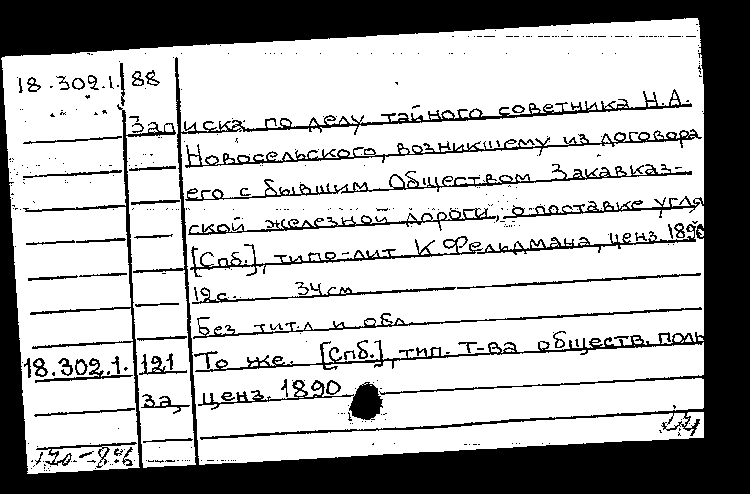 18.302.1. 88
Записка по делу тайного советника Н.А.
Новосельского, возникшему из договора
его с бывшим Обществом Закавказ-
ской железной дороги, о поставке угля
[Спб.], типо-лит К Фельдмана, ценз. 1890
12 с. 34 см
Без тит.л и обл.
18.302.1. 121 То же. [Спб.], тип. Т-ва обществ. поль
за, ценз. 1890